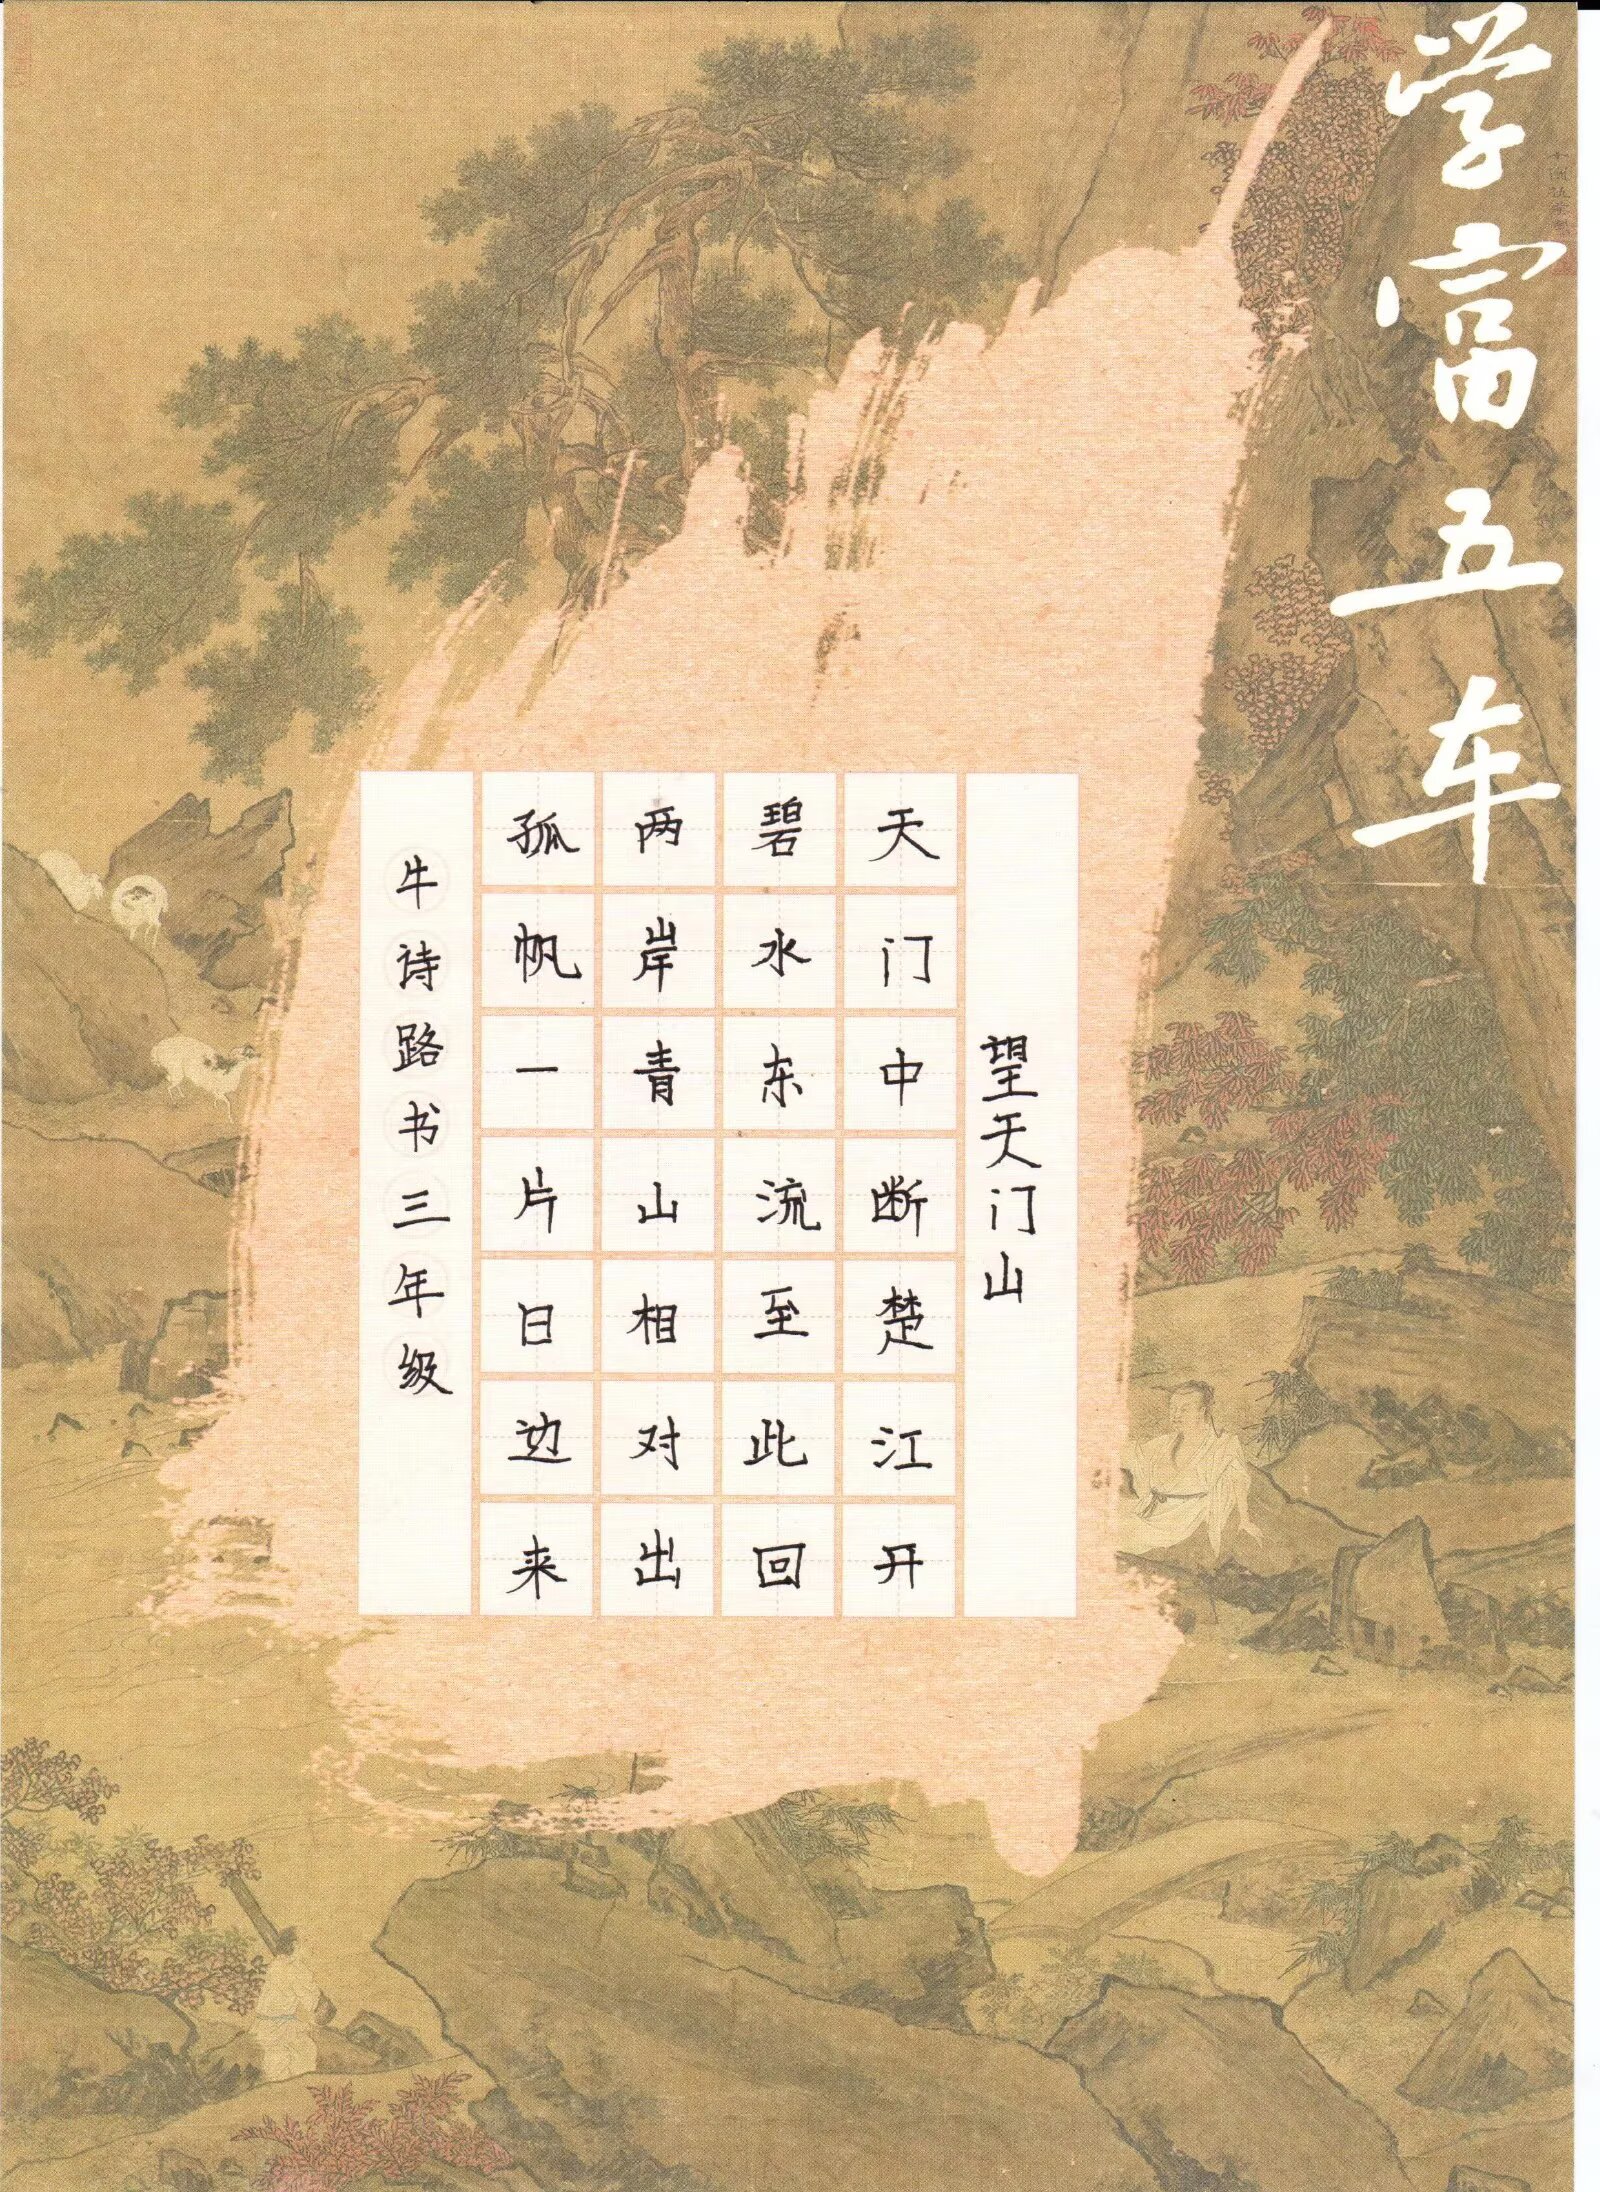 学富五车
望天门山
天门中断楚江开
碧水东流至此回
两岸青山相对出
孤帆一片日边来
牛诗路书三年级